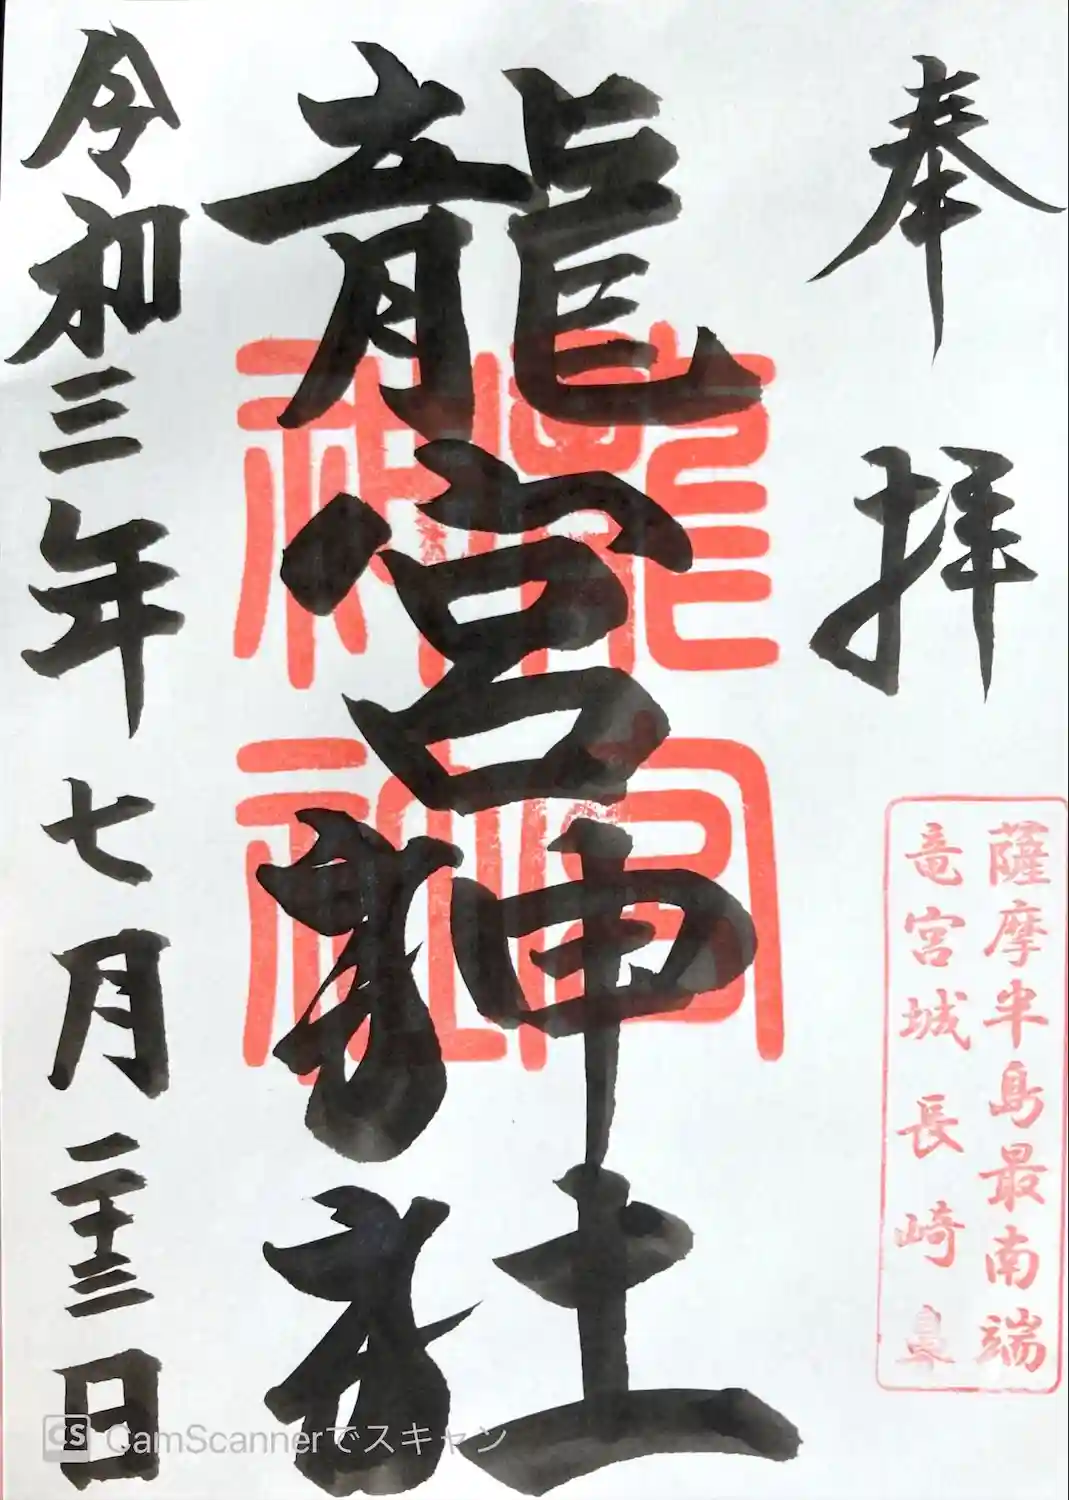 奉拝
薩摩半島最南端
竜宮城長崎鼻
龍宮神社
龍宮
神社
令和三年七月二十三日
CS CamScannerでスキャン